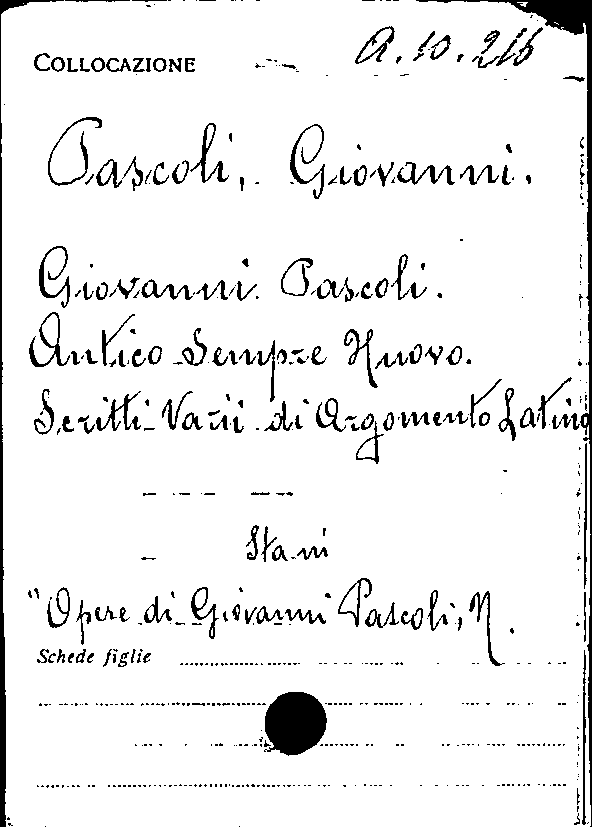 COLLOCAZIONE A.10.216
Pascoli, Giovanni.
Giovanni Pascoli.
Antico Sempre Nuovo.
Scritti Varii di Argomento Latino
"Opere di Giovanni Pascoli, N.
Schede figlie